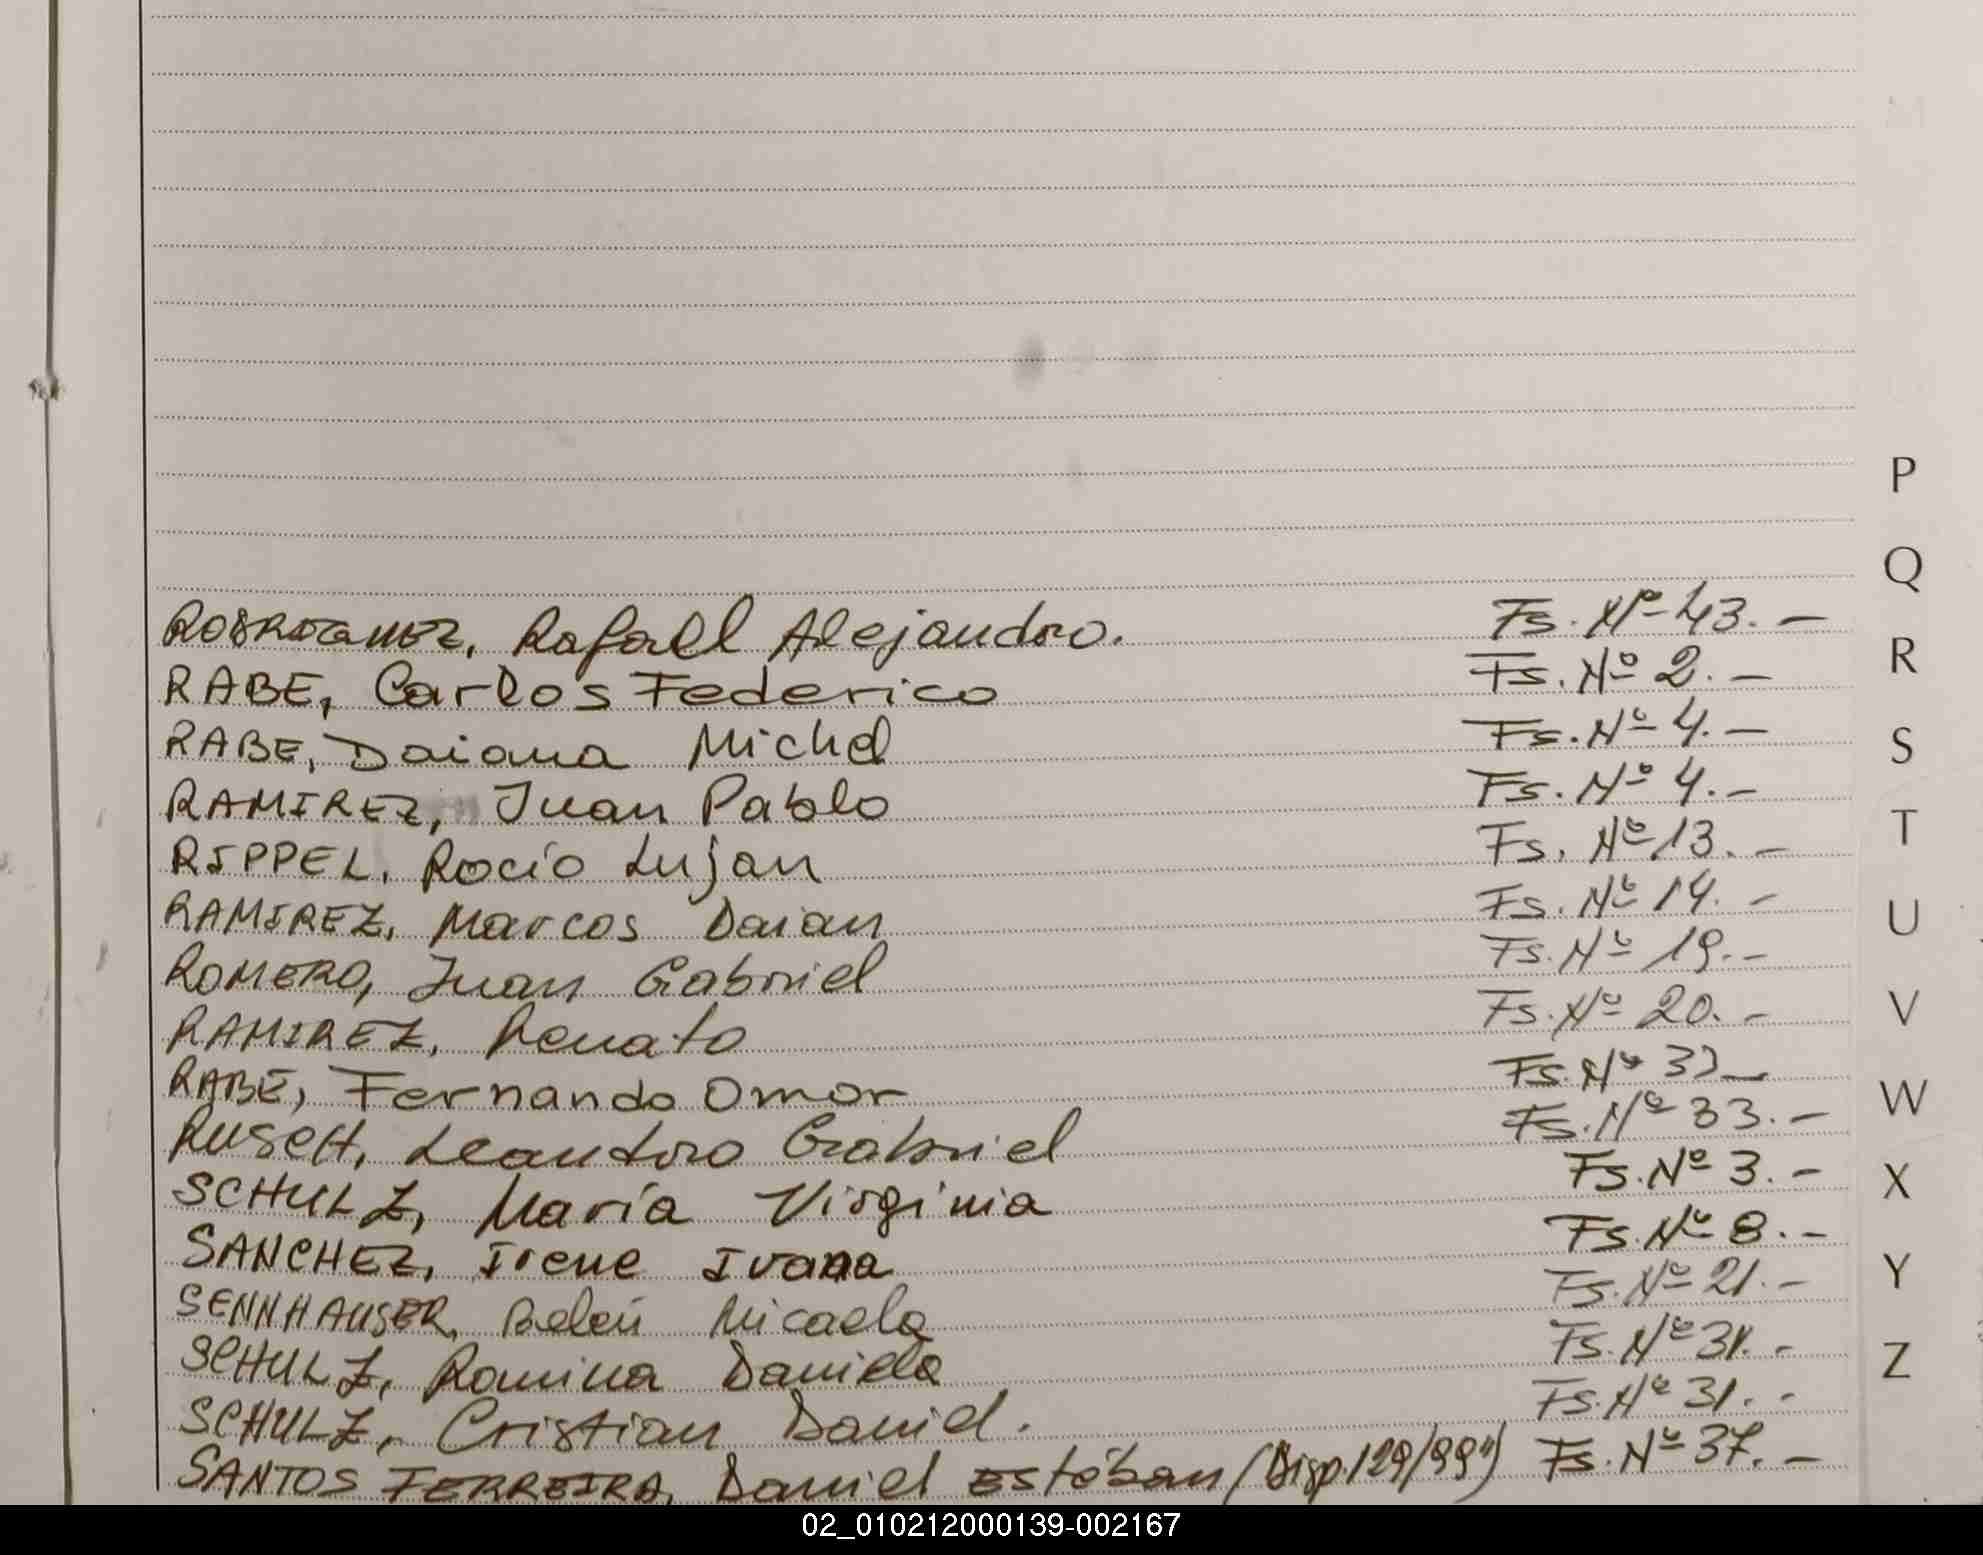 RODRIGUEZ, Rafael Alejandro. Fs. Nº 43. –
RABE, Carlos Federico Fs. Nº 2. –
RABE, Daiana Michel Fs. Nº 4. –
RAMIREZ, Juan Pablo Fs. Nº 4. –
RIPPEL, Rocío Lujan Fs. Nº 13. –
RAMIREZ, Marcos Daian Fs. Nº 14. –
ROMERO, Juan Gabriel Fs. Nº 19. –
RAMIREZ, Renato Fs. Nº 20. –
RABE, Fernando Omar Fs. Nº
RUSCH, Leandro Gabriel Fs. Nº 33. –
SCHULZ, María Virginia Fs. Nº 3. –
SANCHEZ, Irene Ivana Fs. Nº 8. –
SENNHAUSER, Belén Micaela Fs. Nº 21. –
SCHULZ, Romina Daniela Fs. Nº 31. -
SCHULZ, Cristian Daniel. Fs. Nº 31. -
SANTOS FERREIRA, Daniel Estéban (Disp. 129/99") Fs. Nº 37. –
P
Q
R
S
T
U
V
W
X
Y
Z
02_010212000139-002167